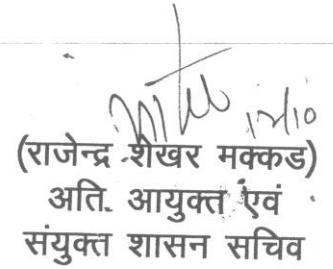 12/10
(राजेन्द्र शेखर मक्कड)
अति. आयुक्त एवं
संयुक्त शासन सचिव